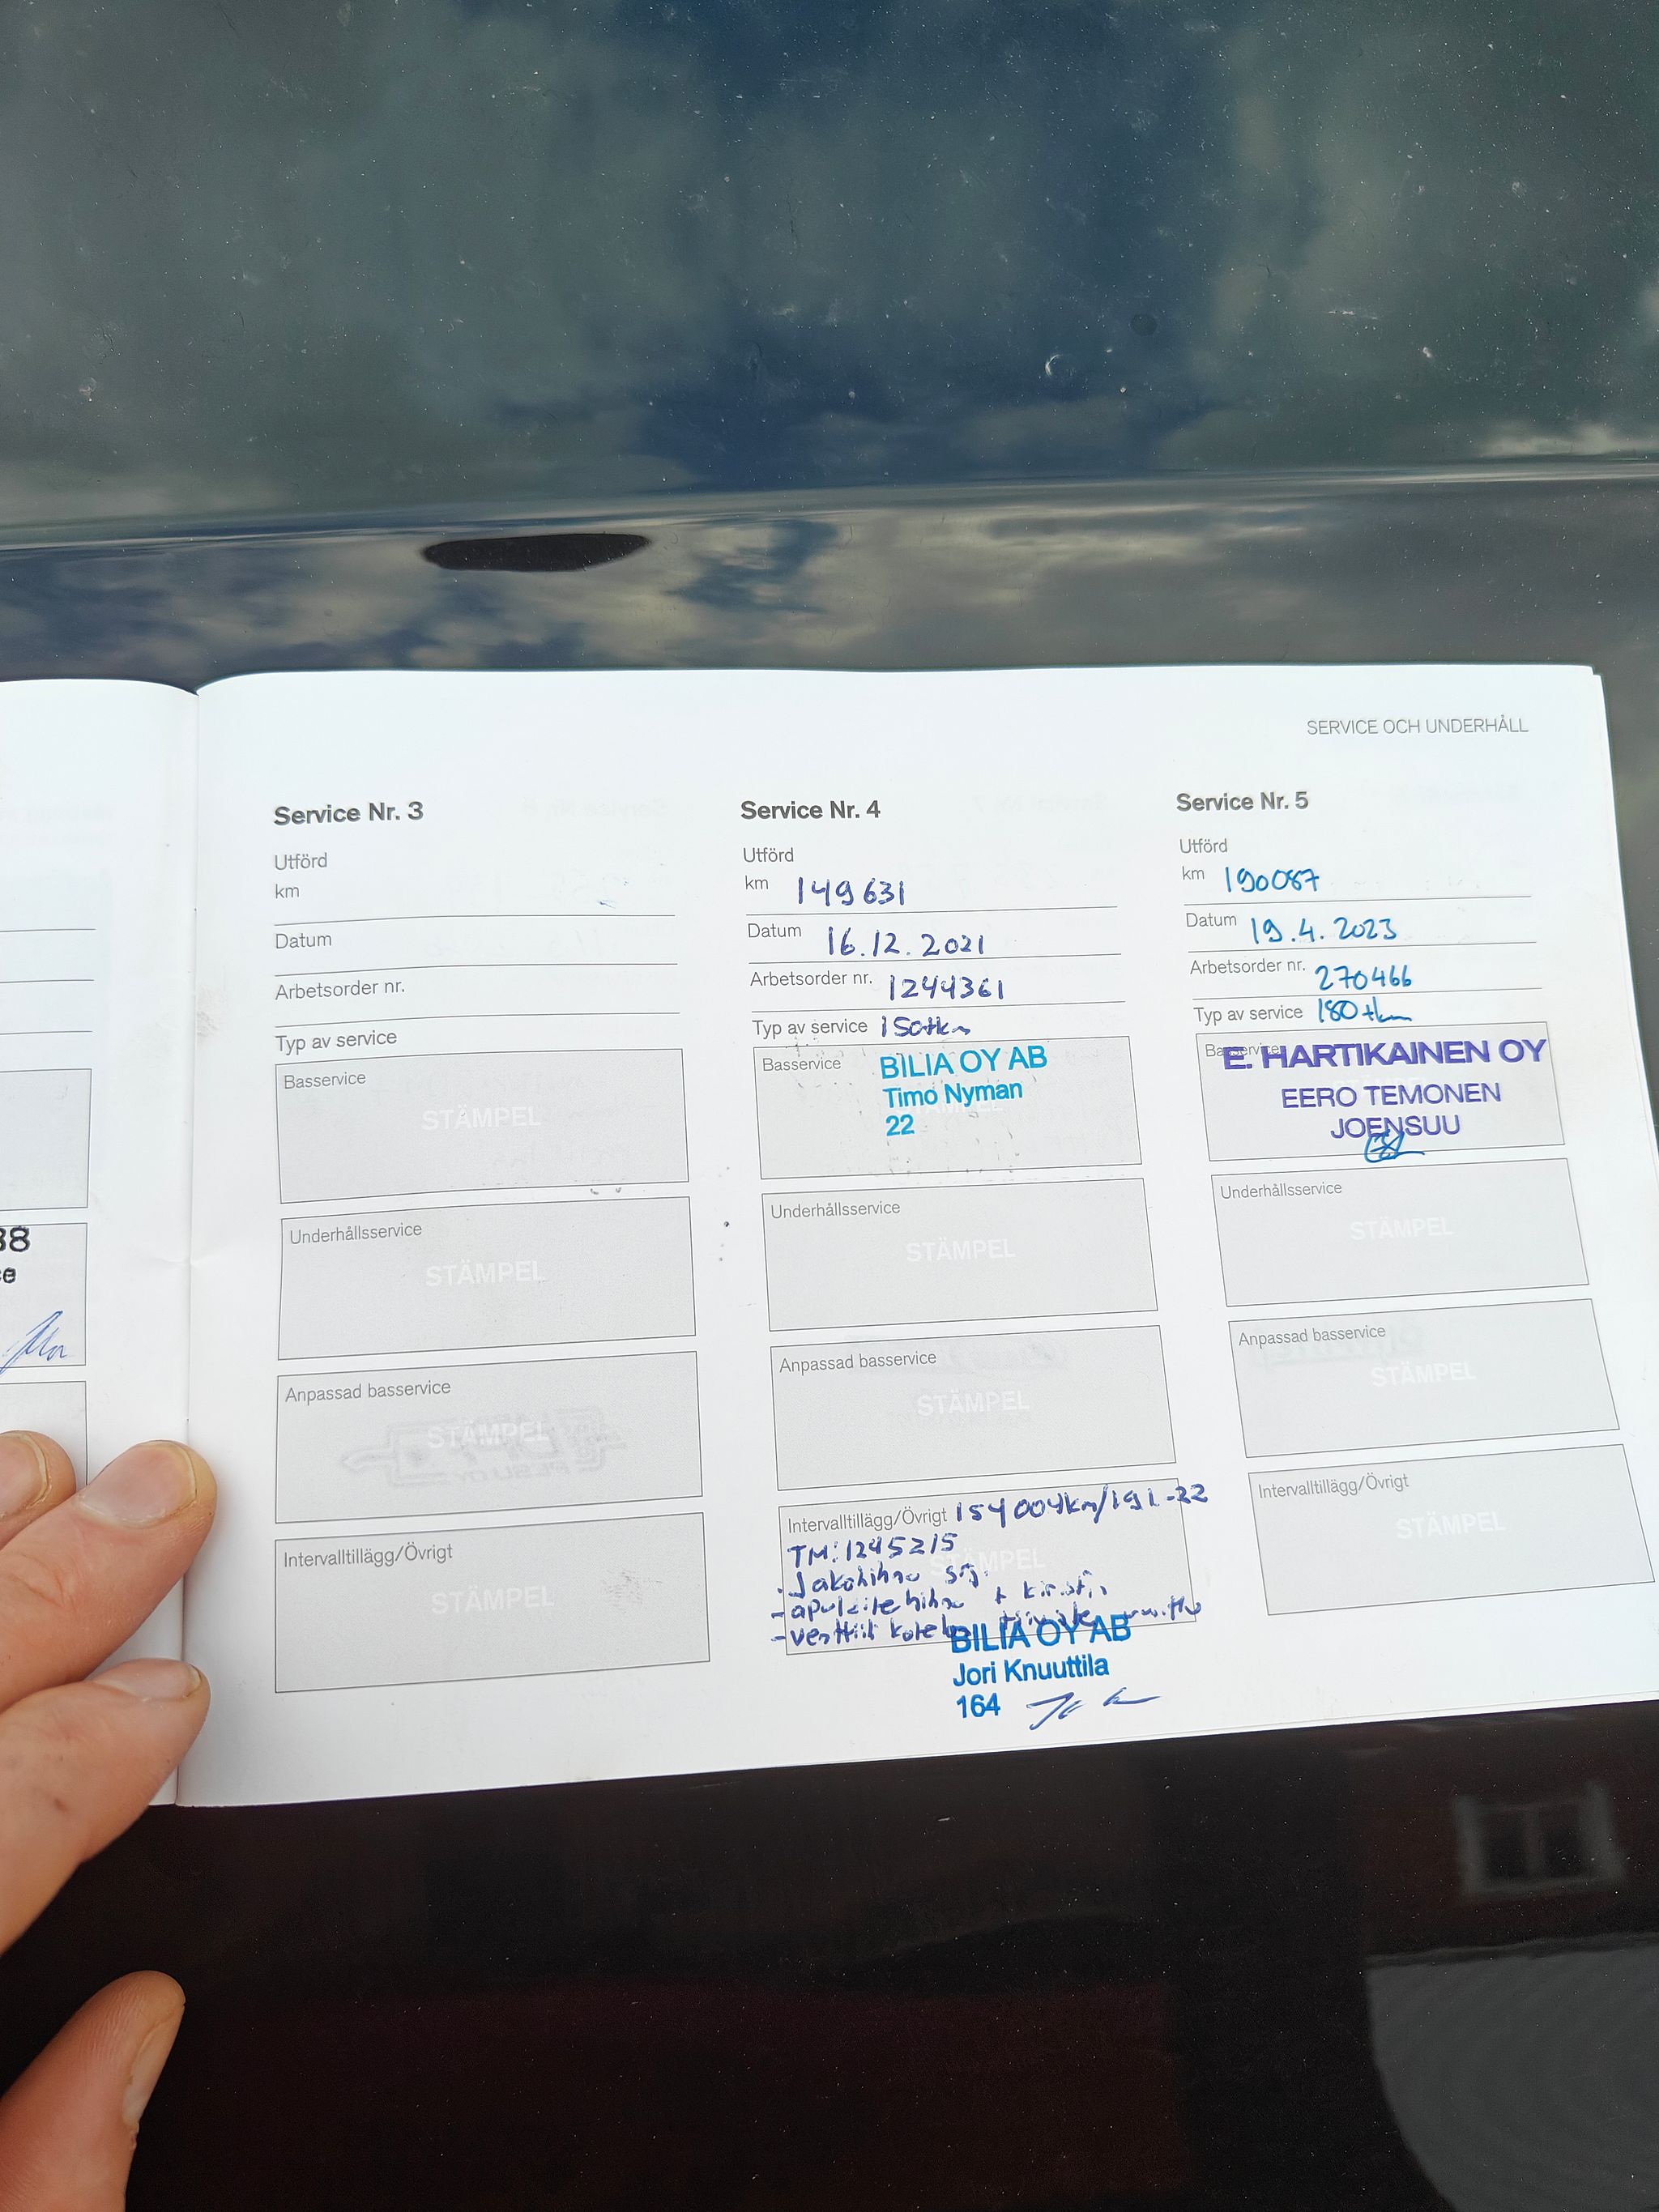 SERVICE OCH UNDERHÅLL
Service Nr. 3
Utförd
km
Datum
Arbetsorder nr.
Typ av service
Basservice
STÄMPEL
Underhållsservice
STÄMPEL
Anpassad basservice
STÄMPEL
Intervalltillägg/Övrigt
STÄMPEL
Service Nr. 4
Utförd
km 149 631
Datum 16.12.2021
Arbetsorder nr. 1244361
Typ av service 150tkm
Basservice
BILIA OY AB
Timo Nyman
22
Underhållsservice
STÄMPEL
Anpassad basservice
STÄMPEL
Intervalltillägg/Övrigt 154 004km/
TM: 1245215
- Jakohihna srj.
- apulaitehihna +
- venttiili
BILIA OY AB
Jori Knuuttila
164
Service Nr. 5
Utförd
km 190087
Datum 19.4.2023
Arbetsorder nr. 270466
Typ av service 180tkm
Basservice
E. HARTIKAINEN OY
EERO TEMONEN
JOENSUU
Underhållsservice
STÄMPEL
Anpassad basservice
STÄMPEL
Intervalltillägg/Övrigt
STÄMPEL